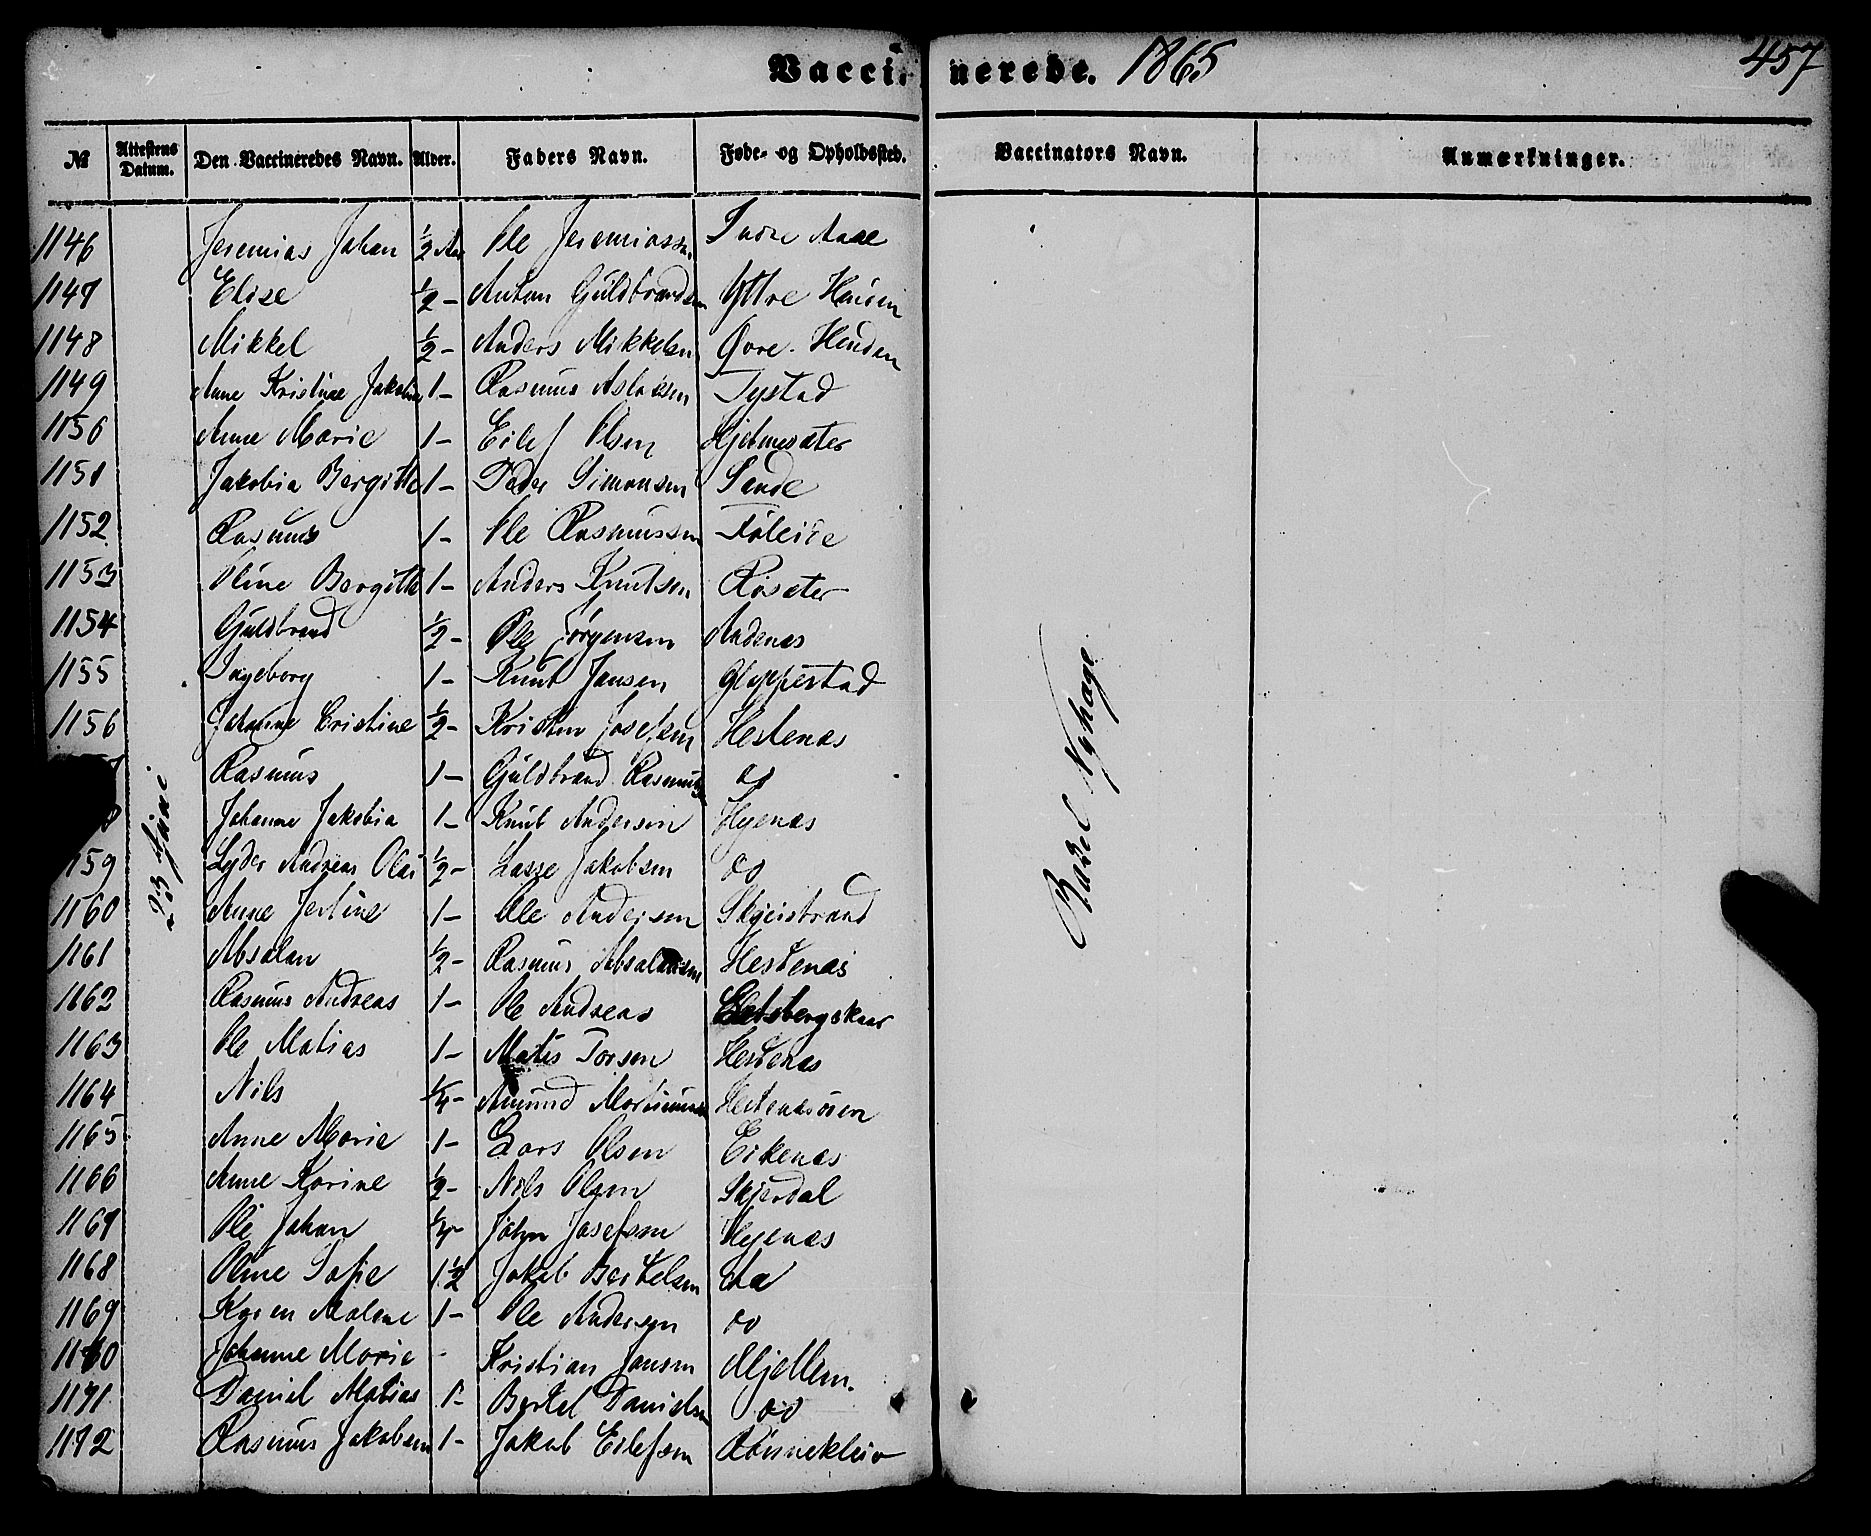 Vaccinerede. 1865 457
№ Attestens Datum. Den Vaccineredes Navn. Alder. Faders Navn. Føde- og Opholdssted. Vaccinators Navn. Anmærkninger.
1146 Jeremias Johan ½ Aar Ole Jeremiassen Indre Aase
1147 Elise ½ - Anton Guldbrandsen Yttre
1148 Mikkel ½ - Anders Mikkelsen Øvre
1149 Anne Kristine Jakobine 1 - Rasmus Aslaksen Tystad
1150 Anne Marie 1 - Eilef Olsen Hjelmesæter
1151 Jakobia Bergitte 1 - Peder Simonsen Sande
1152 Rasmus 1 - Ole Rasmussen
1153 Oline Bergitte 1 - Anders Knutsen Røsæter
1154 Guldbrand ½ - Ole Jørgensen Andenæs
1155 Ingeborg 1 - Knut Jansen Gloppestad
1156 Johanne Cristine ½ - Kristen Josefsen Hestenæs
Rasmus 1 - Guldbrand Rasmussen do
8 Johanne Jakobia 1 - Knut Andersen Hyenæs
1159 Lyder Andreas Olai ½ - Lasse Jakobsen do
1160 Anne Jertine 1 - Ole Andersen Skjeistrand
1161 Absalon ½ - Rasmus Absalonsen Hestenæs
1162 Rasmus Andreas 1 - Ole Andreas
1163 Ole Matias 1 - Matis Torsen Hestenæs
1164 Nils ¼ - Amund Hestenæsøren
1165 Anne Marie 1 - Lars Olsen Eikenæs
1166 Anne Karine ½ - Nils Olsen Skjerdal
1167 Ole Johan ¼ - John Josefsen Hyenæs
1168 Oline Sofie 1½ Jakob Bertelsen Aa
1169 Karen Malene 1 - Ole Andersen do
1170 Johanne Marie - Kristian Jansen Mjellem.
1171 Daniel Matias 1 - Bertel Danielsen do
1172 Rasmus Jakobsen 1 - Jakob Eilefsen Rønnekleiv
23 Juni
Nyhage